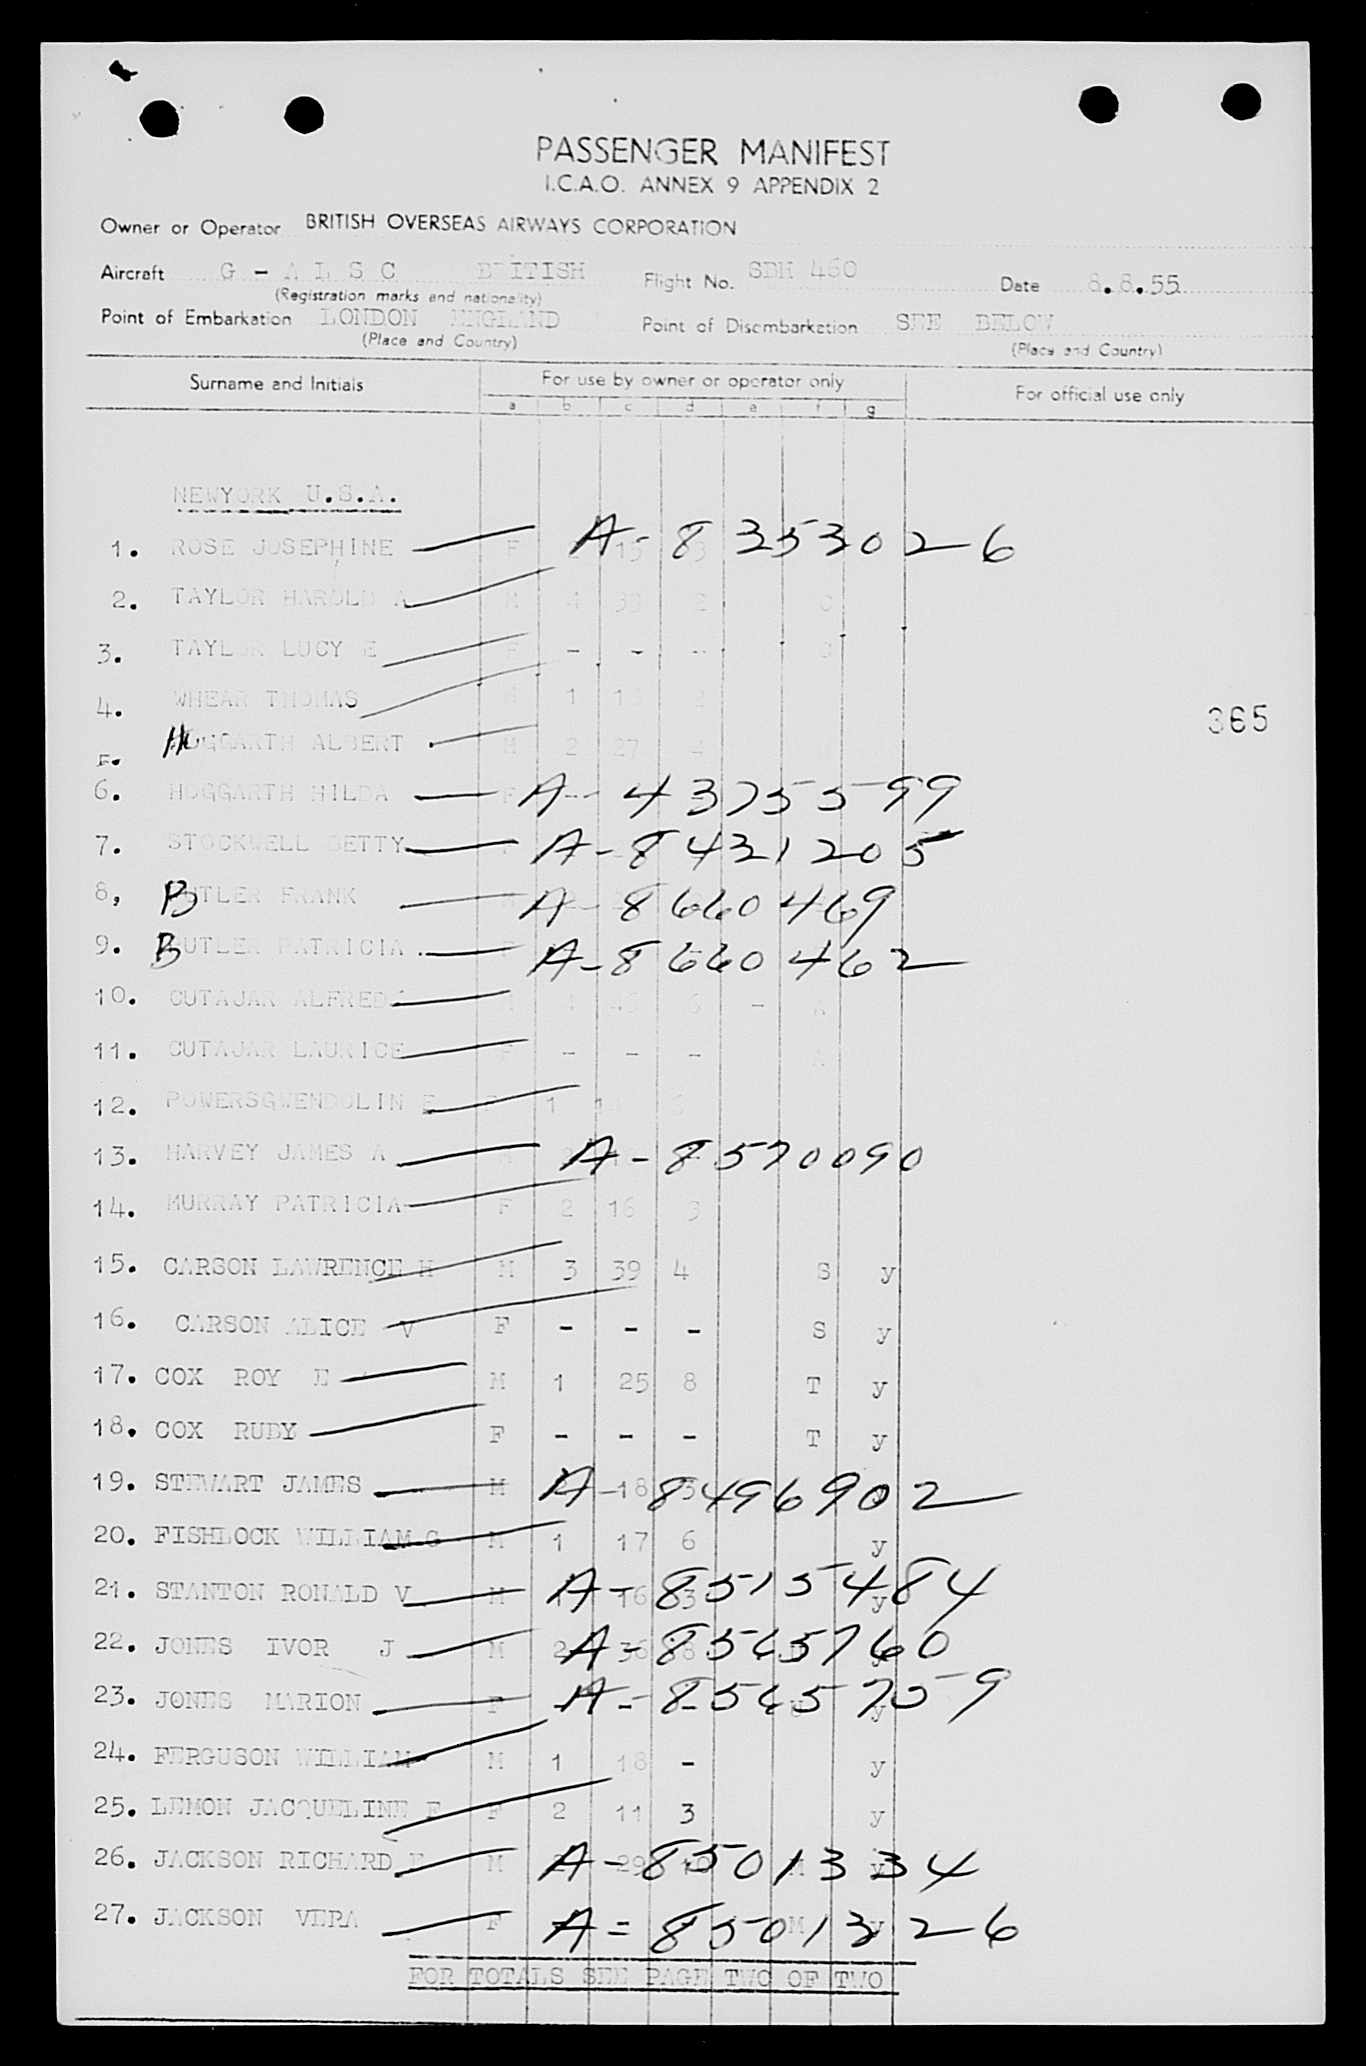 PASSENGER MANIFEST
I.C.A.O. ANNEX 9 APPENDIX 2
Owner or Operator BRITISH OVERSEAS AIRWAYS CORPORATION
Aircraft G - A L S C BRITISH Flight No. SBH 460 Date 8.8.55
(Registration marks and nationality)
Point of Embarkation LONDON ENGLAND Point of Disembarkation SEE BELOW
(Place and Country) (Place and Country)
Surname and Initials For use by owner or operator only For official use only
a b c d e f g
NEWYORK U.S.A.
1. ROSE JOSEPHINE F A-8353026
2. TAYLOR HAROLD A M 4 39 2
3. TAYLOR LUCY E F - - -
4. WHEAR THOMAS M 1 2
365
HOGGARTH ALBERT M 2 27 4
6. HOGGARTH HILDA F A-4375599
7. STOCKWELL BETTY A-8431205
8, BUTLER FRANK M A-8660469
9. BUTLER PATRICIA A-8660462
10. CUTAJAR ALFRED 4 6 - A
11. CUTAJAR LAURICE F - - - A
12. POWERSGWENDOLIN E 1
13. HARVEY JAMES A M A-8570090
14. MURRAY PATRICIA F 2 16 3
15. CARSON LAWRENCE H M 3 39 4 S y
16. CARSON ALICE V F - - - S y
17. COX ROY E M 1 25 8 T y
18. COX RUBY F - - - T y
19. STEWART JAMES M A-8496902
20. FISHLOCK WILLIAM G M 1 17 6 y
21. STANTON RONALD V M 16 3 y A-8515484
22. JONES IVOR J M 2 36 8 A-8565760
23. JONES MARION F - - y A-8565759
24. FERGUSON WILLIAM M 1 18 - y
25. LEMON JACQUELINE F F 2 11 3 y
26. JACKSON RICHARD M 2 29 10 M y A-8501334
27. JACKSON VERA F M y A=8501326
FOR TOTALS SEE PAGE TWO OF TWO